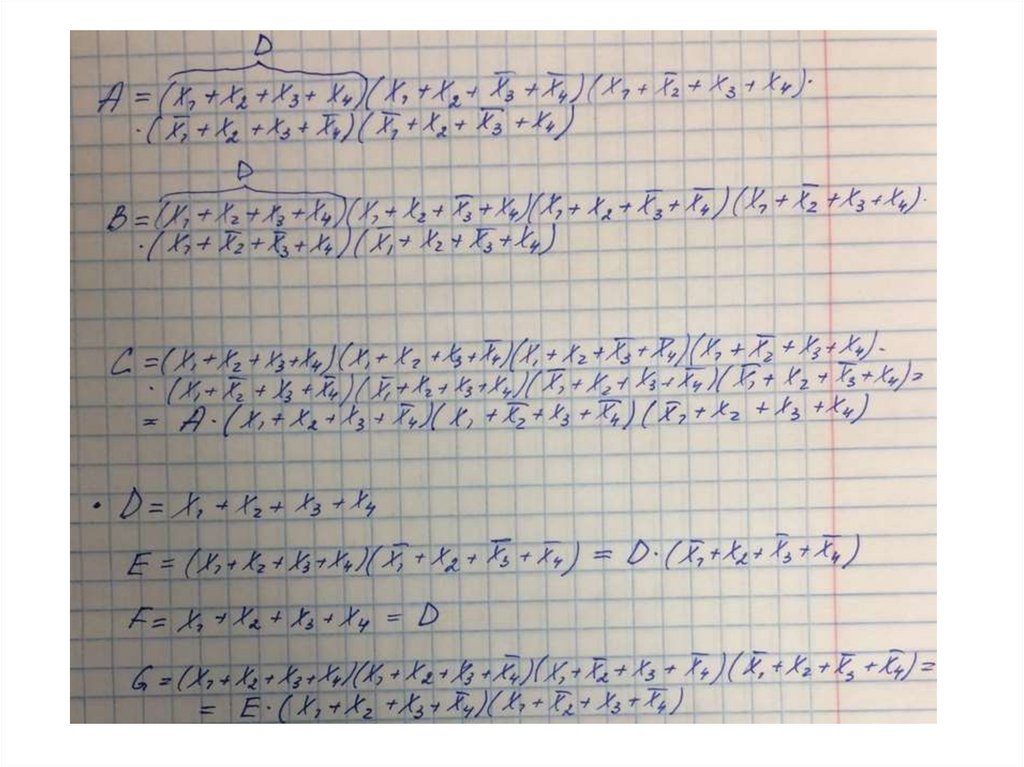 D
A = (X₁ + X₂ + X₃ + X₄)(X₁ + X₂ + X̅₃ + X̅₄)(X₁ + X̅₂ + X₃ + X₄)·
·(X̅₁ + X₂ + X₃ + X̅₄)(X̅₁ + X₂ + X̅₃ + X₄)
D
B = (X₁ + X₂ + X₃ + X₄)(X₁ + X₂ + X̅₃ + X₄)(X₁ + X₂ + X̅₃ + X̅₄)(X₁ + X̅₂ + X₃ + X₄)·
·(X₁ + X̅₂ + X̅₃ + X₄)(X̅₁ + X₂ + X̅₃ + X₄)
C = (X₁ + X₂ + X₃ + X₄)(X₁ + X₂ + X₃ + X̅₄)(X₁ + X₂ + X̅₃ + X̅₄)(X₁ + X̅₂ + X₃ + X₄)·
·(X₁ + X̅₂ + X₃ + X̅₄)(X̅₁ + X₂ + X₃ + X₄)(X̅₁ + X₂ + X₃ + X̅₄)(X̅₁ + X₂ + X̅₃ + X₄) =
= A·(X₁ + X₂ + X₃ + X̅₄)(X₁ + X̅₂ + X₃ + X̅₄)(X̅₁ + X₂ + X₃ + X₄)
· D = X₁ + X₂ + X₃ + X₄
E = (X₁ + X₂ + X₃ + X₄)(X̅₁ + X₂ + X̅₃ + X̅₄) = D·(X̅₁ + X₂ + X̅₃ + X̅₄)
F = X₁ + X₂ + X₃ + X₄ = D
G = (X₁ + X₂ + X₃ + X₄)(X₁ + X₂ + X₃ + X̅₄)(X₁ + X̅₂ + X₃ + X̅₄)(X̅₁ + X₂ + X̅₃ + X̅₄) =
= E·(X₁ + X₂ + X₃ + X̅₄)(X₁ + X̅₂ + X₃ + X̅₄)